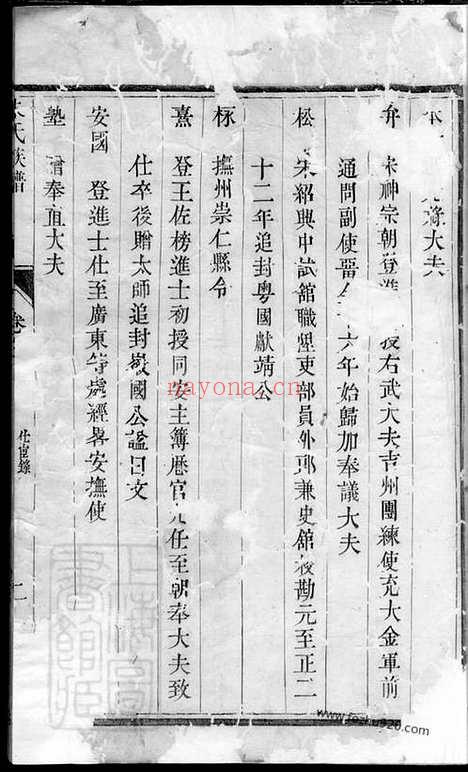 大夫
弁 宋神宗朝登進 授右武大夫吉州團練使充大金軍前
通問副使 六年始歸加奉議大夫
松 宋紹興中試舘職 吏部員外郎兼史舘校勘元至正二
十二年追封粵國獻靖公
椓 撫州崇仁縣令
熹 登王佐榜進士初授同安主簿歷官九任至朝奉大夫致
仕卒後贈太師追封徽國公謚曰文
安國 登進士仕至廣東等處經畧安撫使
塾 贈奉直大夫
氏族譜
卷
仕宦錄
二
nayona.cn